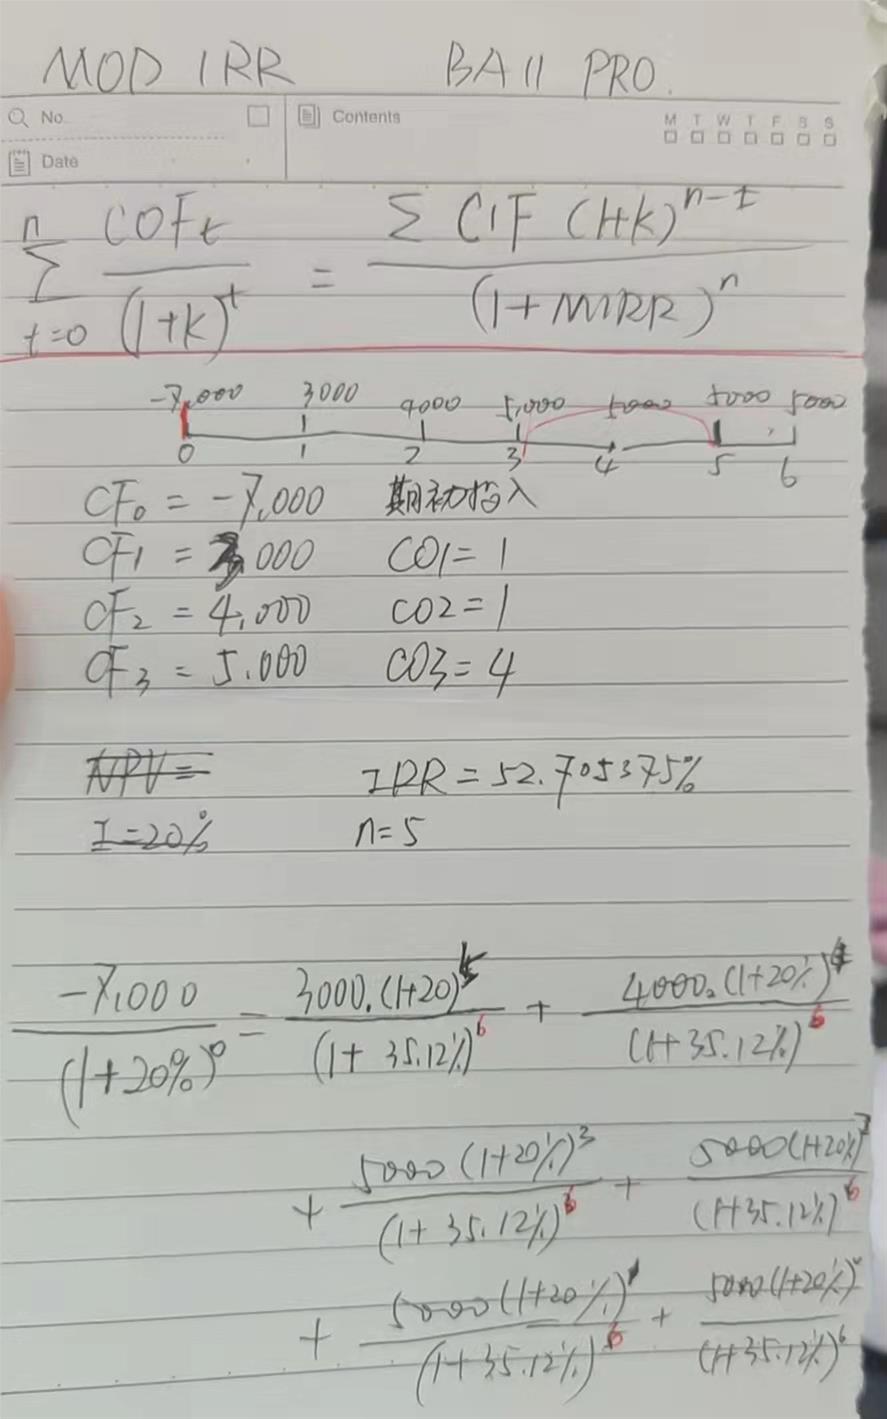 MOD IRR BA II PRO.
No. Contents M T W T F S S
Date
n COFt = Σ CIF (1+k)^n-t
Σ
t=0 (1+k)^t (1+MIRR)^n
-7,000 3000 4000 5,000 5000 5000 5000
0 1 2 3 4 5 6
CF₀ = -7,000 期初投入
CF₁ = 3,000 CO1 = 1
CF₂ = 4,000 CO2 = 1
CF₃ = 5,000 CO3 = 4
NPV = IRR = 52.705375%
I = 20% n = 5
-7,000 = 3000.(1+20)^5 + 4000.(1+20%)^4
(1+20%)^0 (1+35.12%)^6 (1+35.12%)^6
+ 5000(1+20%)^3 + 5000(1+20%)^2
(1+35.12%)^6 (1+35.12%)^6
+ 5000(1+20%)^1 + 5000(1+20%)^0
(1+35.12%)^6 (1+35.12%)^6